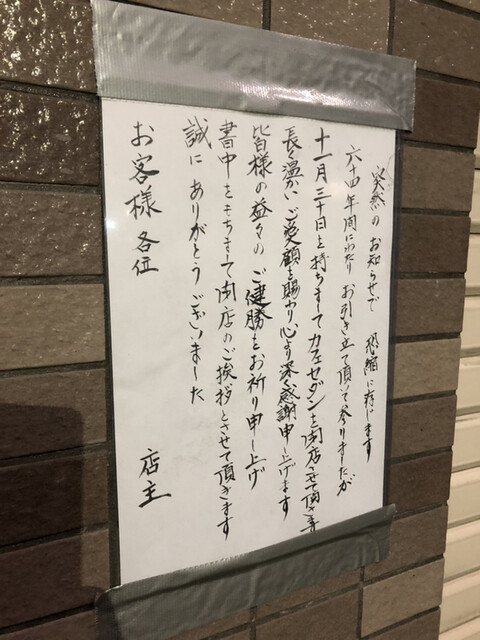 突然のお知らせで 恐縮に存じます
六十四年間にわたり お引き立て頂いて参りましたが
十一月三十日を持ちまして カフェセダンを閉店させて頂き
長く温かいご愛顧を賜わり 心より深く感謝申し上げます
皆様の益々の ご健勝をお祈り申し上げ
書中をもちまして閉店のご挨拶とさせて頂きます
誠に ありがとうございました
お客様 各位
店主